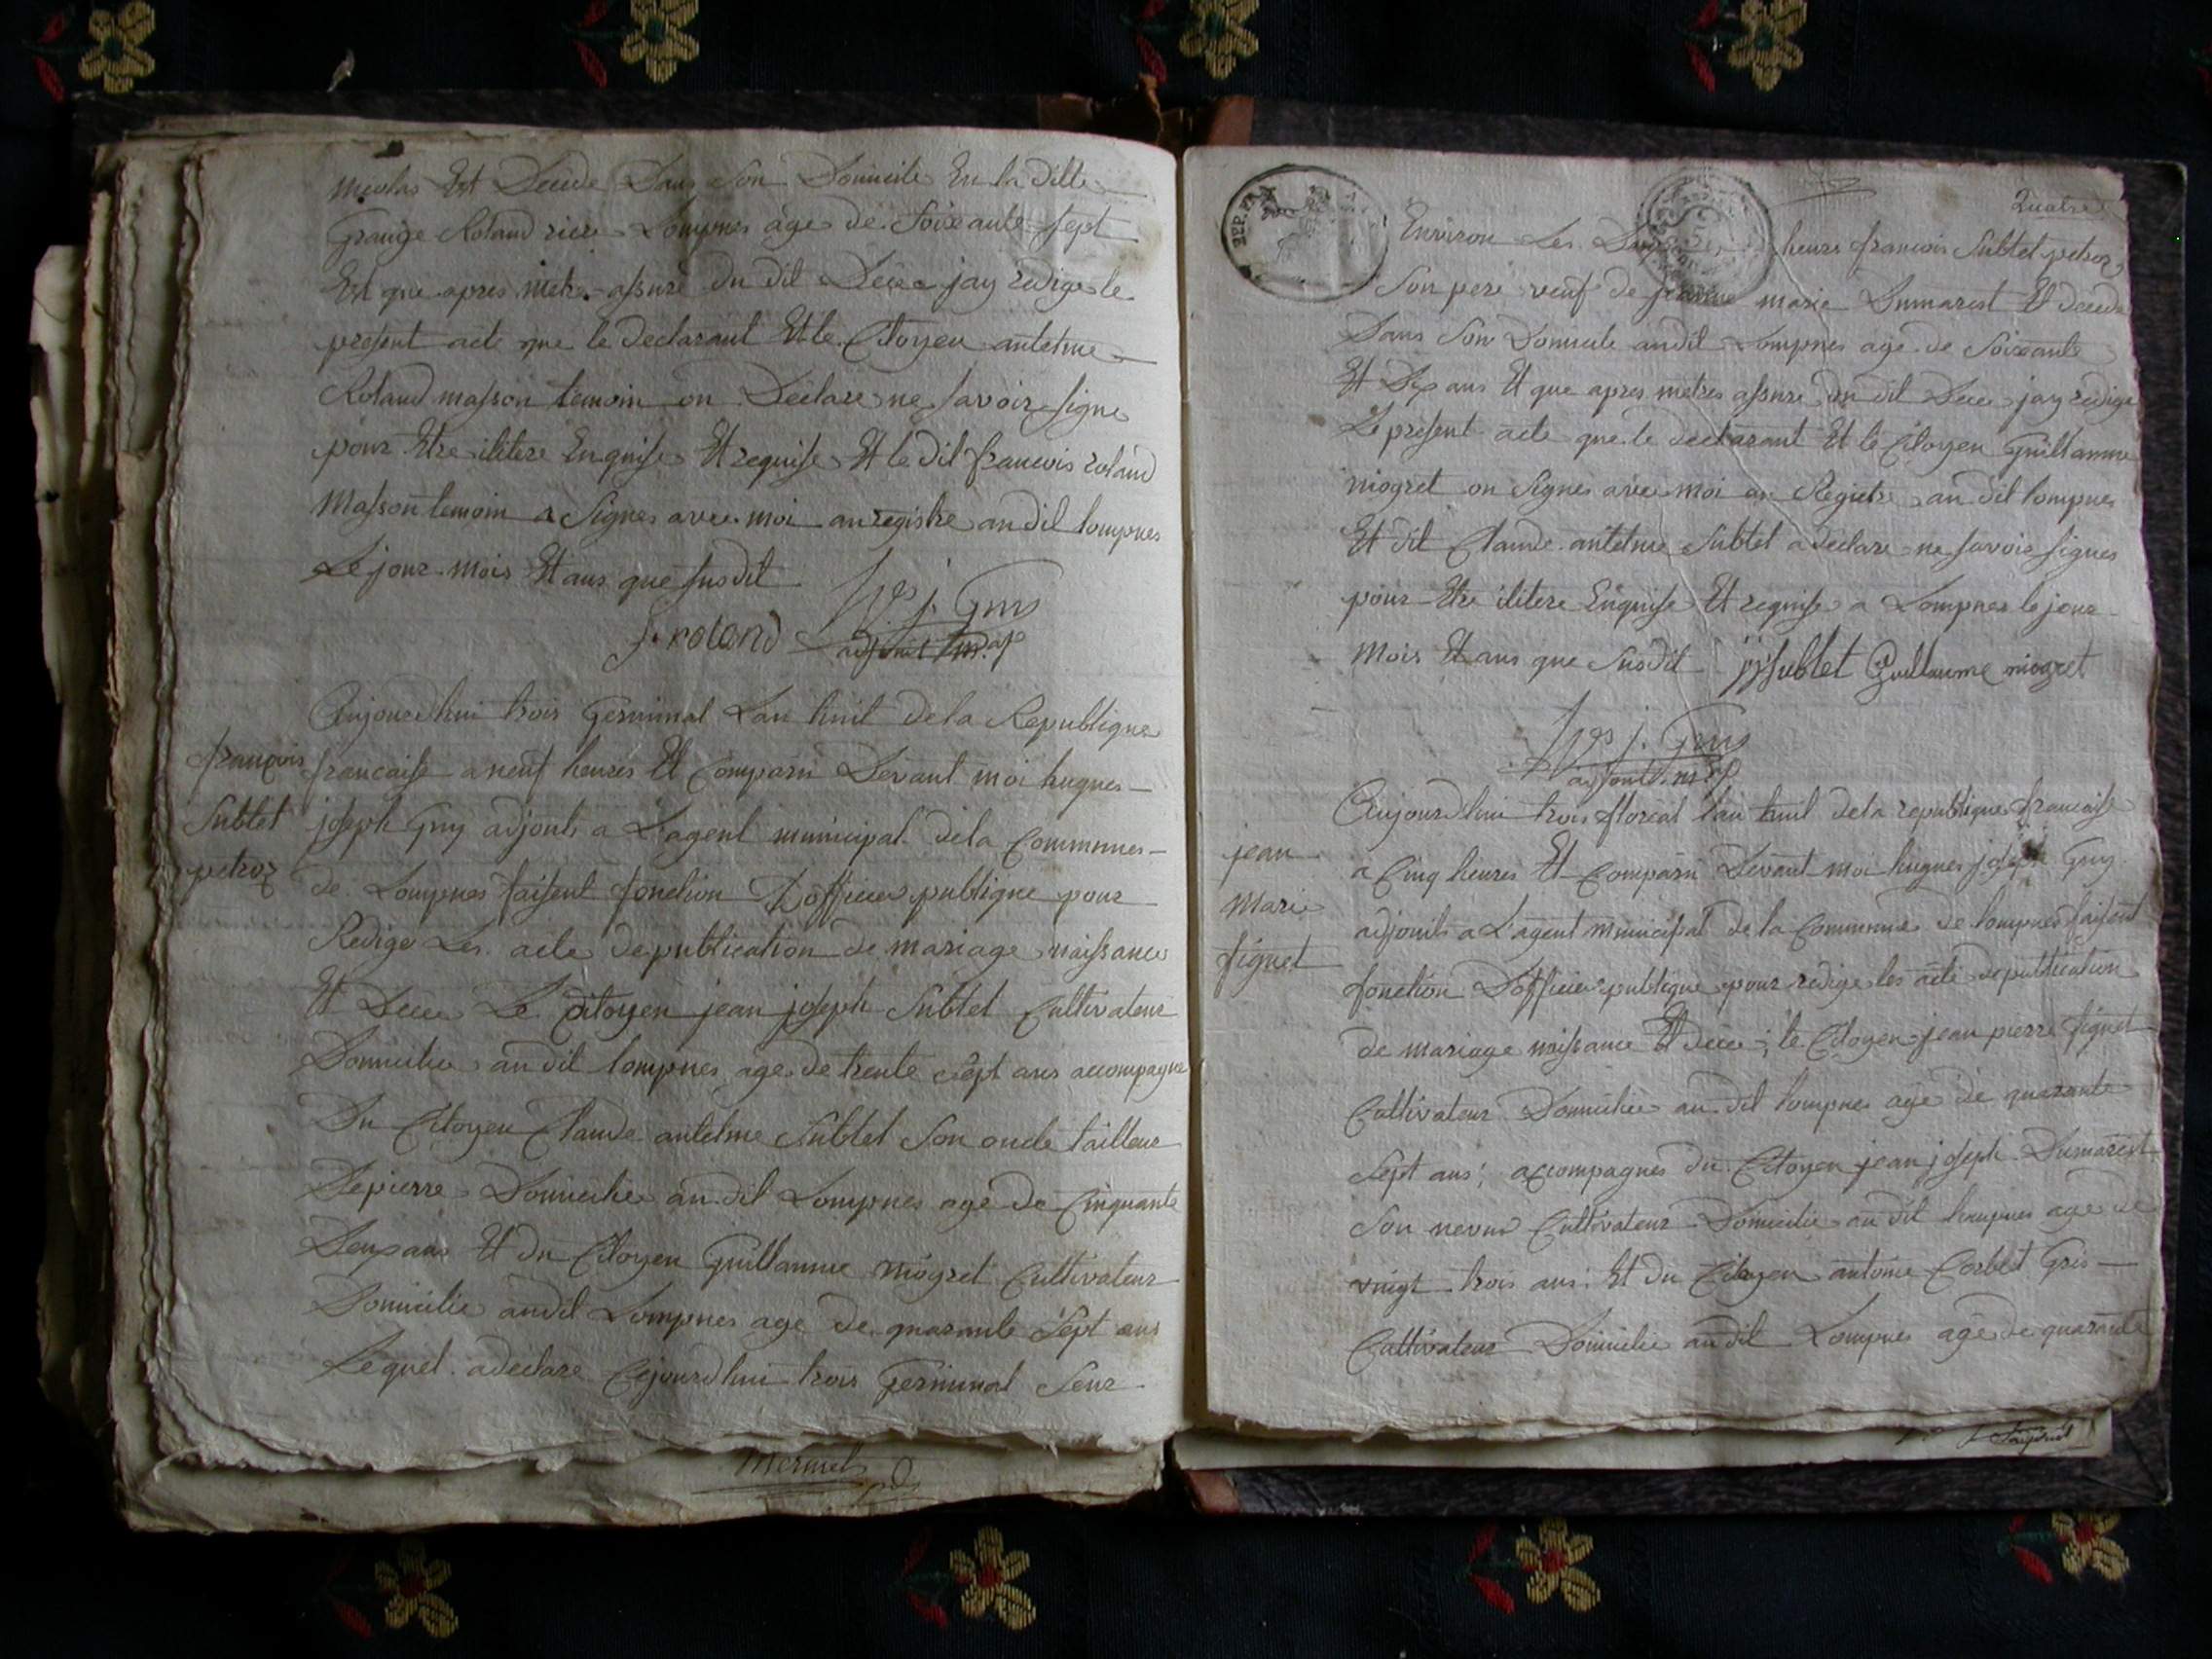 nicolas Est Decede Dans Son Domicile En la ditte
Grange Roland riere Lompnes age de Soixante Sept
Est que apres metre assure du dit Deces jay redige le
present acte que le declarant Et le Citoyen antelme
Roland masson temoin on Declare ne savoir signe
pour Etre ilitere Enquise Et requise Et le dit francois roland
Masson temoin a Signes avec moi au registre au dit lompnes
Le jour mois Et ans que susdit
f. roland
hes j. Guy
adjoint m.al
Aujourdhui trois Germinal Lan huit de la Republique
francois
Sublet
petroz
francaise a neuf heures Et Comparu Devant moi hugues
joseph Guy adjoints a L'agent municipal dela Communes
de Lompnes faisent fonction D'officier publique pour
Redige Les acte de publication de mariage naissance
Et Deces Le Citoyen jean joseph Sublet Cultivateur
Domicilie au dit lompnes age de trente Sept ans accompagne
Du Citoyen Claude antelme Sublet Son oncle tailleur
De pierre Domicilie au dit Lompnes age de Cinquante
Deux ans Et du Citoyen Guillaume niogret Cultivateur
Domicilie au dit Lompnes age de quarante Sept ans
Lequel a declare Cejourdhui trois Germinal Seur
Mermet
Quatre
REP. FRA
Environ Les heures francois Sublet petroz
Son pere veuf de jeanne marie Dumarest Et decede
Dans Son Domicile au dit Lompnes age de Soixante
Et Dix ans Et que apres metres assure du dit Deces jay redige
Le present acte que le declarant Et le Citoyen Guillaume
niogret on Signes avec moi au Regietre au dit lompnes
Et dit Claude antelme Sublet a declare ne savoir signes
pour Etre ilitere Enquise Et requise a Lompnes le jour
Mois Et ans que Susdit jj Sublet Guillaume niogret
hes j. Guy
adjoint m.al
Aujourdhui trois floreal l'an huit dela republique francaise
jean
Marie
figuet
a Cinq heures Et Comparu Devant moi hugues joseph Guy
adjoints a L'agent municipal de la Commune de lompnes faisent
fonction D'officier publique pour redige les acte de publication
de mariage naissance Et deces ; le Citoyen jean pierre figuet
Cultivateur Domicilie au dit lompnes age de quarante
Sept ans ; accompagnes du Citoyen jean joseph Dumarest
Son neveu Cultivateur Domicilie au dit lompnes age de
vingt trois ans : Et du Citoyen antoine Corbet Gris
Cultivateur Domicilie au dit Lompnes age de quarante